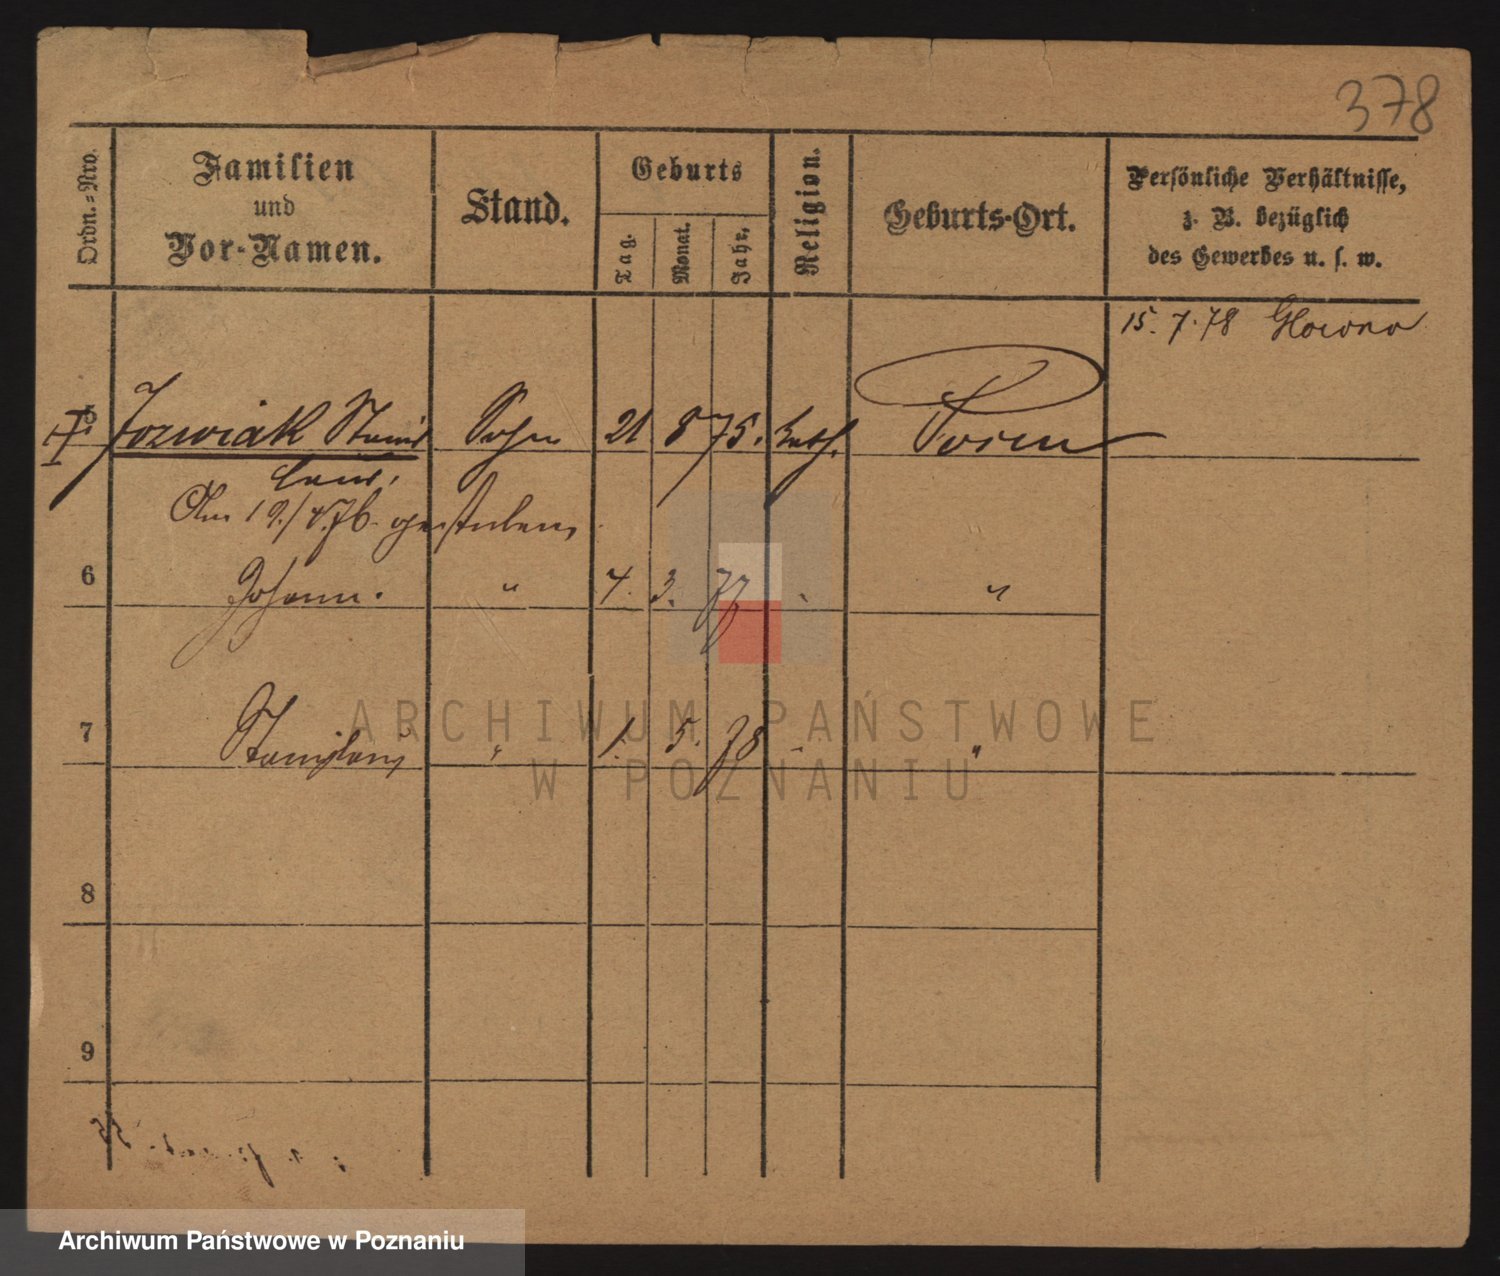 378
Ordn.-Nro.
Familien
und
Vor-Namen.
Stand.
Geburts
Tag.
Monat.
Jahr.
Religion.
Geburts-Ort.
Persönliche Verhältnisse,
z. B. bezüglich
des Gewerbes u. s. w.
15. 7. 78 Glowno
5 Jozwiak Stanis Sohn 21 8 75. kath. Posen
laus.
Am 19./4.76. gestorben
6 Johann. " 7. 3. 77 "
7 Stanislaus " 1. 5. 78 "
8
9
ARCHIWUM PAŃSTWOWE
W POZNANIU
Archiwum Państwowe w Poznaniu